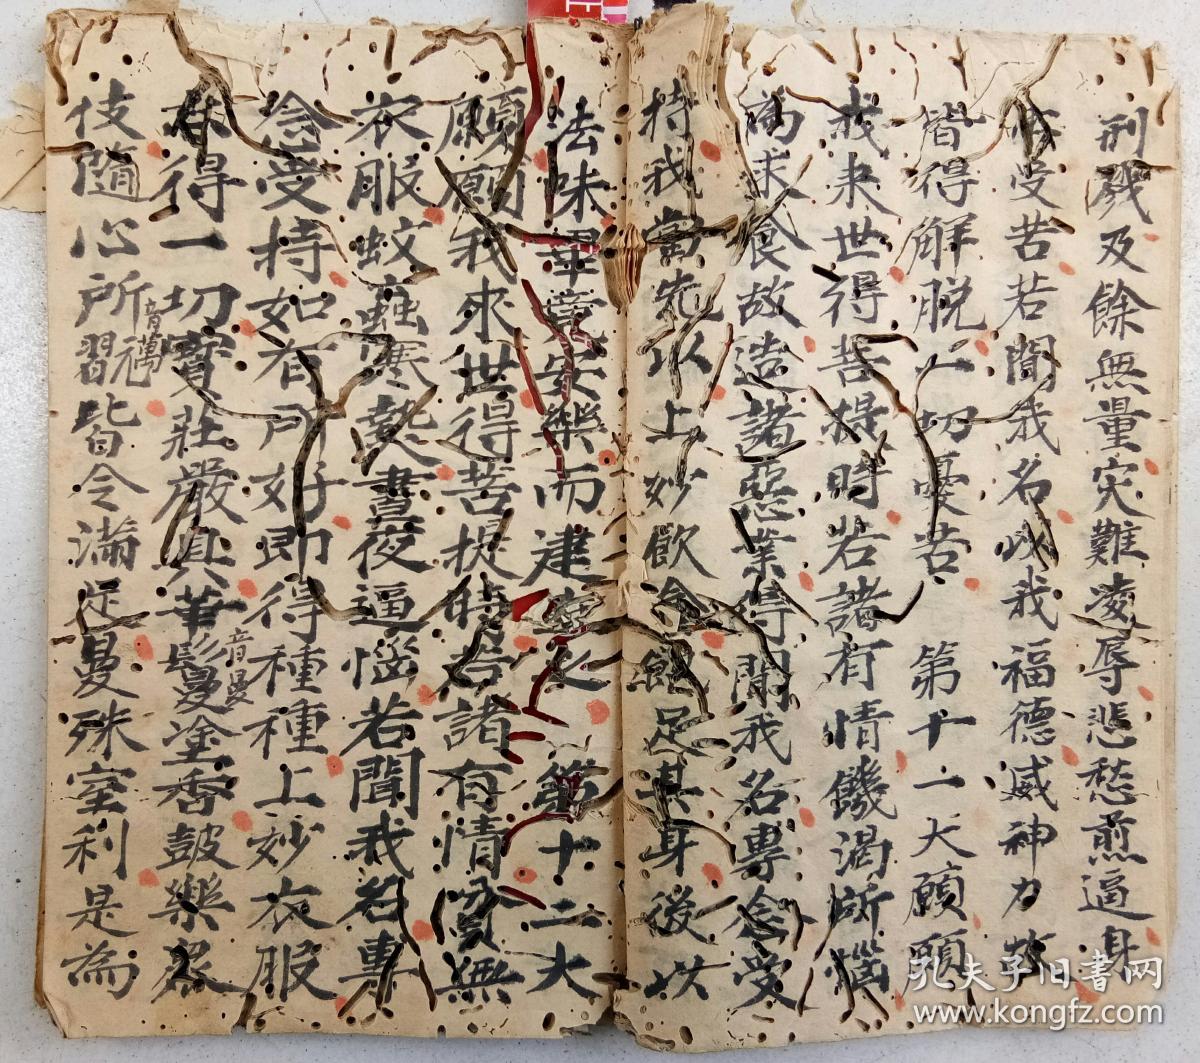 刑戮及餘無量灾難凌辱悲愁煎逼身
心受苦若聞我名以我福德威神力故
皆得解脱一切憂苦 第十一大願願
我来世得菩提時若諸有情饑渴所惱
為求食故造諸惡業得聞我名專念受
持我當先以上妙飲食飽足其身後以
法味畢竟安樂而建立之 第十二大
願願我來世得菩提時若諸有情貧無
衣服蚊䖟寒熱晝夜逼惱若聞我名專
念受持如有所好即得種種上妙衣服
亦得一切寳莊嚴具華鬘塗香鼓樂眾
音曼
伎隨心所翫皆令滿足曼殊室利是為
音萬
習
孔夫子旧书网
www.kongfz.com